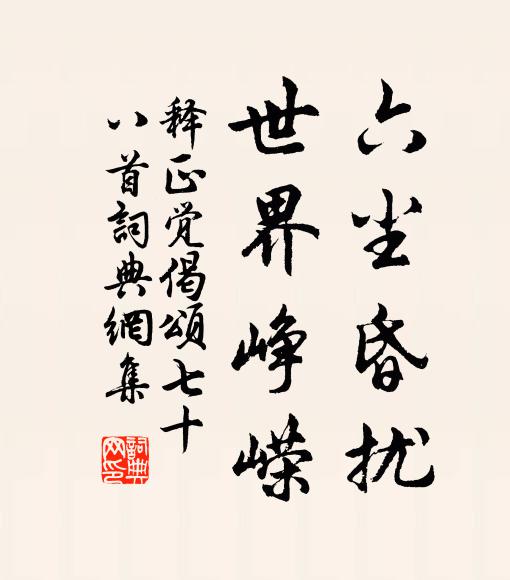 六尘昏扰
世界峥嵘
释正觉偈颂七十
八首詞典網集
詞典网印